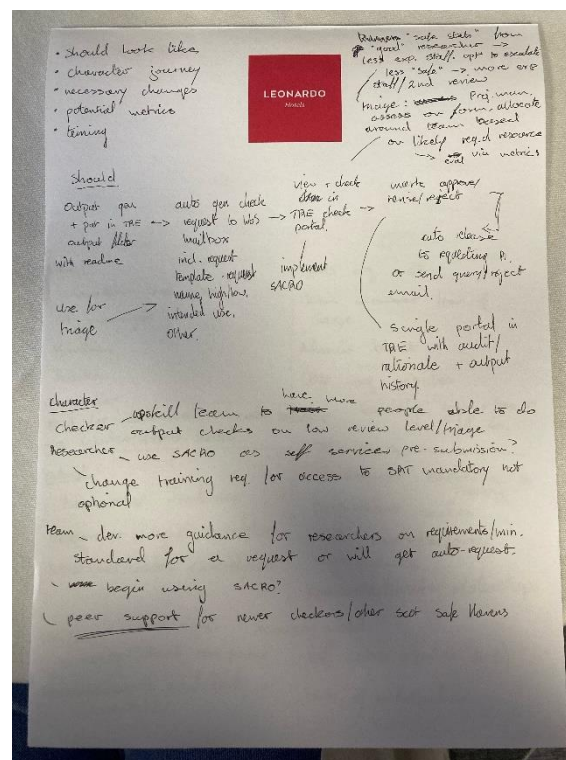 • should look like
• character journey
• necessary changes
• potential metrics
• training
LEONARDO
Hotels
"safe stats" from
"good" researcher →
less exp. staff. opt to escalate
less "safe" → more exp
staff/2nd review
Triage: Proj. man.
assess on form. allocate
around team based
on likely req.d resource
→ eval via metrics
Should
output gen
+ put in TRE →
output folder
with readme
use for
triage
auto gen check
request to
mailbox
incl. request
template - request
name, high/low,
intended use,
other.
view + check
in
TRE check →
portal.
implement
SACRO
approve/
revise/reject
auto release
to requesting R.
or send query/reject
email.
single portal in
TRE with audit/
rationale + output
history
character
checker - upskill team to have more people able to do
output checks on low review level/triage
Researcher - use SACRO as self service pre-submission?
change training req. for access to SAT mandatory not
optional
team - dev. more guidance for researchers on requirements/min.
standard for a request or will get auto-request.
- begin using SACRO?
- peer support for newer checkers/other scot safe havens